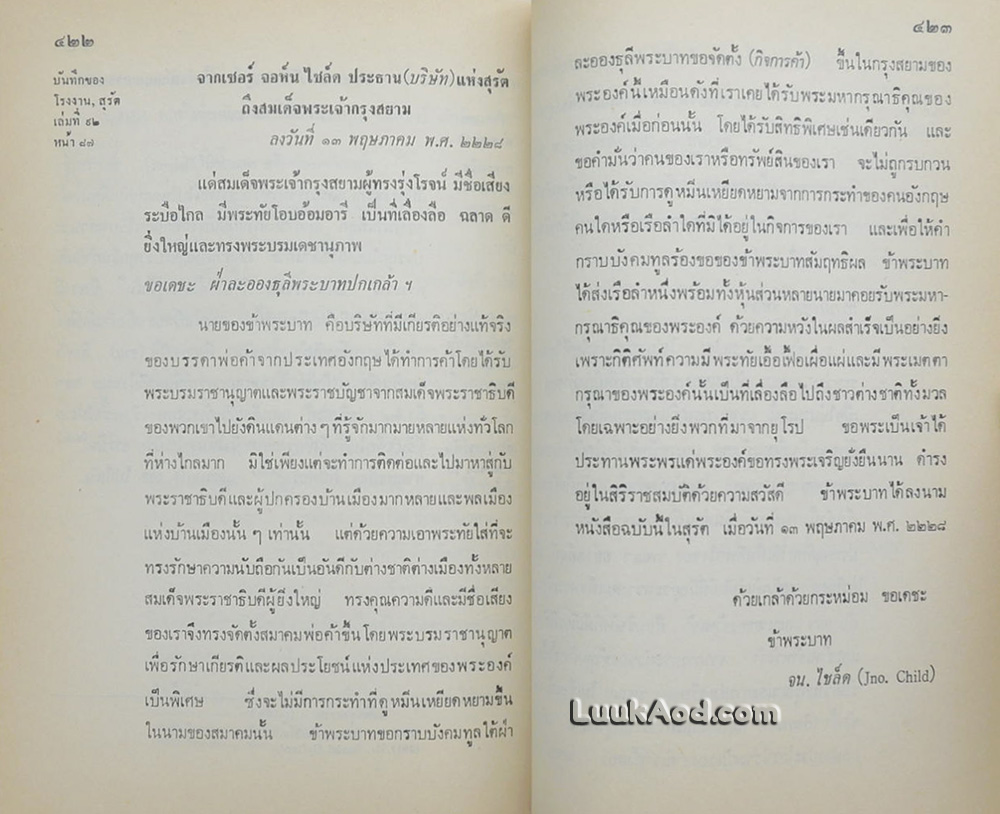 ๔๒๒
บันทึกของ
โรงงาน, สุรัต
เล่มที่ ๙๒
หน้า ๘๗
จากเซอร์ จอห์น ไชล์ด ประธาน (บริษัท) แห่งสุรัต
ถึงสมเด็จพระเจ้ากรุงสยาม
ลงวันที่ ๑๓ พฤษภาคม พ.ศ. ๒๒๒๘
แด่สมเด็จพระเจ้ากรุงสยามผู้ทรงรุ่งโรจน์ มีชื่อเสียง
ระบือไกล มีพระทัยโอบอ้อมอารี เป็นที่เลื่องลือ ฉลาด ดี
ยิ่งใหญ่และทรงพระบรมเดชานุภาพ
ขอเดชะ ฝ่าละอองธุลีพระบาทปกเกล้า ฯ
นายของข้าพระบาท คือบริษัทที่มีเกียรติอย่างแท้จริง
ของบรรดาพ่อค้าจากประเทศอังกฤษได้ทำการค้าโดยได้รับ
พระบรมราชานุญาตและพระราชบัญชาจากสมเด็จพระราชาธิบดี
ของพวกเขาไปยังดินแดนต่าง ๆ ที่รู้จักมากมายหลายแห่งทั่วโลก
ที่ห่างไกลมาก มิใช่เพียงแต่จะทำการติดต่อและไปมาหาสู่กับ
พระราชาธิบดีและผู้ปกครองบ้านเมืองมากหลายและพลเมือง
แห่งบ้านเมืองนั้น ๆ เท่านั้น แต่ด้วยความเอาพระทัยใส่ที่จะ
ทรงรักษาความนับถือกันเป็นอันดีกับต่างชาติต่างเมืองทั้งหลาย
สมเด็จพระราชาธิบดีผู้ยิ่งใหญ่ ทรงคุณความดีและมีชื่อเสียง
ของเราจึงทรงจัดตั้งสมาคมพ่อค้าขึ้นโดยพระบรมราชานุญาต
เพื่อรักษาเกียรติและผลประโยชน์แห่งประเทศของพระองค์
เป็นพิเศษ ซึ่งจะไม่มีการกระทำที่ดูหมิ่นเหยียดหยามขึ้น
ในนามของสมาคมนั้น ข้าพระบาทขอกราบบังคมทูลใต้ฝ่า
๔๒๓
ละอองธุลีพระบาทขอจัดตั้ง (กิจการค้า) ขึ้นในกรุงสยามของ
พระองค์นี้เหมือนดังที่เราเคยได้รับพระมหากรุณาธิคุณของ
พระองค์เมื่อก่อนนั้น โดยได้รับสิทธิพิเศษเช่นเดียวกัน และ
ขอคำมั่นว่าคนของเราหรือทรัพย์สินของเรา จะไม่ถูกรบกวน
หรือได้รับการดูหมิ่นเหยียดหยามจากการกระทำของคนอังกฤษ
คนใดหรือเรือลำใดที่มิได้อยู่ในกิจการของเรา และเพื่อให้คำ
กราบบังคมทูลร้องขอของข้าพระบาทสัมฤทธิผล ข้าพระบาท
ได้ส่งเรือลำหนึ่งพร้อมทั้งหุ้นส่วนหลายนายมาคอยรับพระมหา-
กรุณาธิคุณของพระองค์ ด้วยความหวังในผลสำเร็จเป็นอย่างยิ่ง
เพราะกิติศัพท์ความมีพระทัยเอื้อเฟื้อเผื่อแผ่และมีพระเมตตา
กรุณาของพระองค์นั้นเป็นที่เลื่องลือไปถึงชาวต่างชาติทั้งมวล
โดยเฉพาะอย่างยิ่งพวกที่มาจากยุโรป ขอพระเป็นเจ้าได้
ประทานพระพรแด่พระองค์ขอทรงพระเจริญยั่งยืนนาน ดำรง
อยู่ในสิริราชสมบัติด้วยความสวัสดี ข้าพระบาทได้ลงนาม
หนังสือฉบับนี้ในสุรัต เมื่อวันที่ ๑๓ พฤษภาคม พ.ศ. ๒๒๒๘
ด้วยเกล้าด้วยกระหม่อม ขอเดชะ
ข้าพระบาท
จน. ไชล์ด (Jno. Child)
LuukAod.com